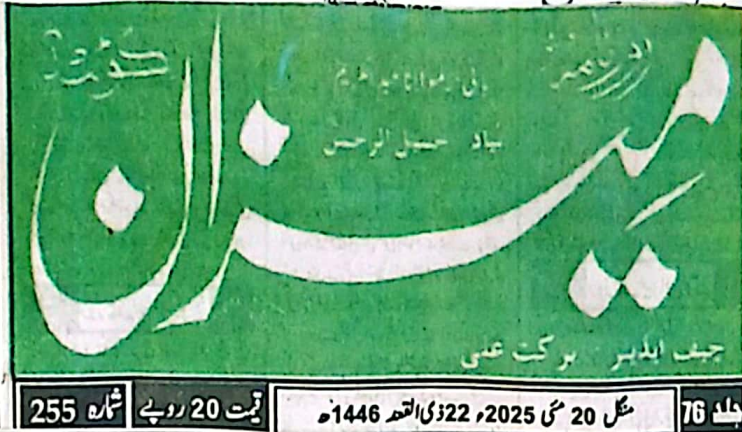 میزان
کوئٹہ
روزنامہ
بانی: مولانا عبدالکریم
بیاد جمیل الرحمن
چیف ایڈیٹر برکت علی
جلد 76
منگل 20 مئی 2025ء 22 ذی القعد 1446ھ
قیمت 20 روپے
شمارہ 255